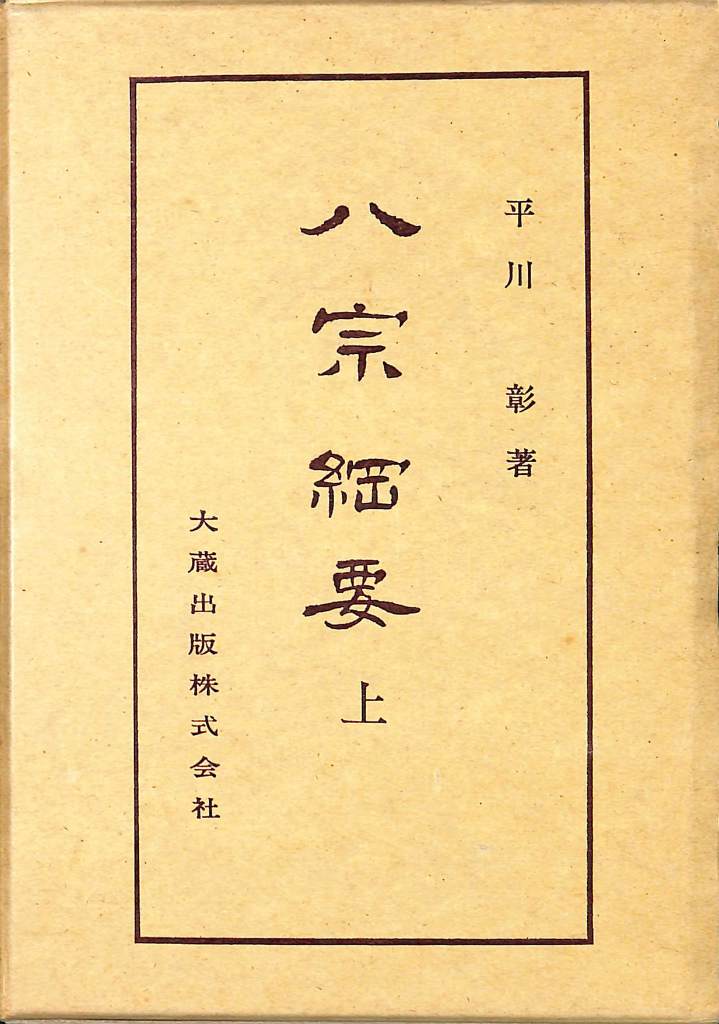 平川 彰著
八宗綱要 上
大蔵出版株式会社